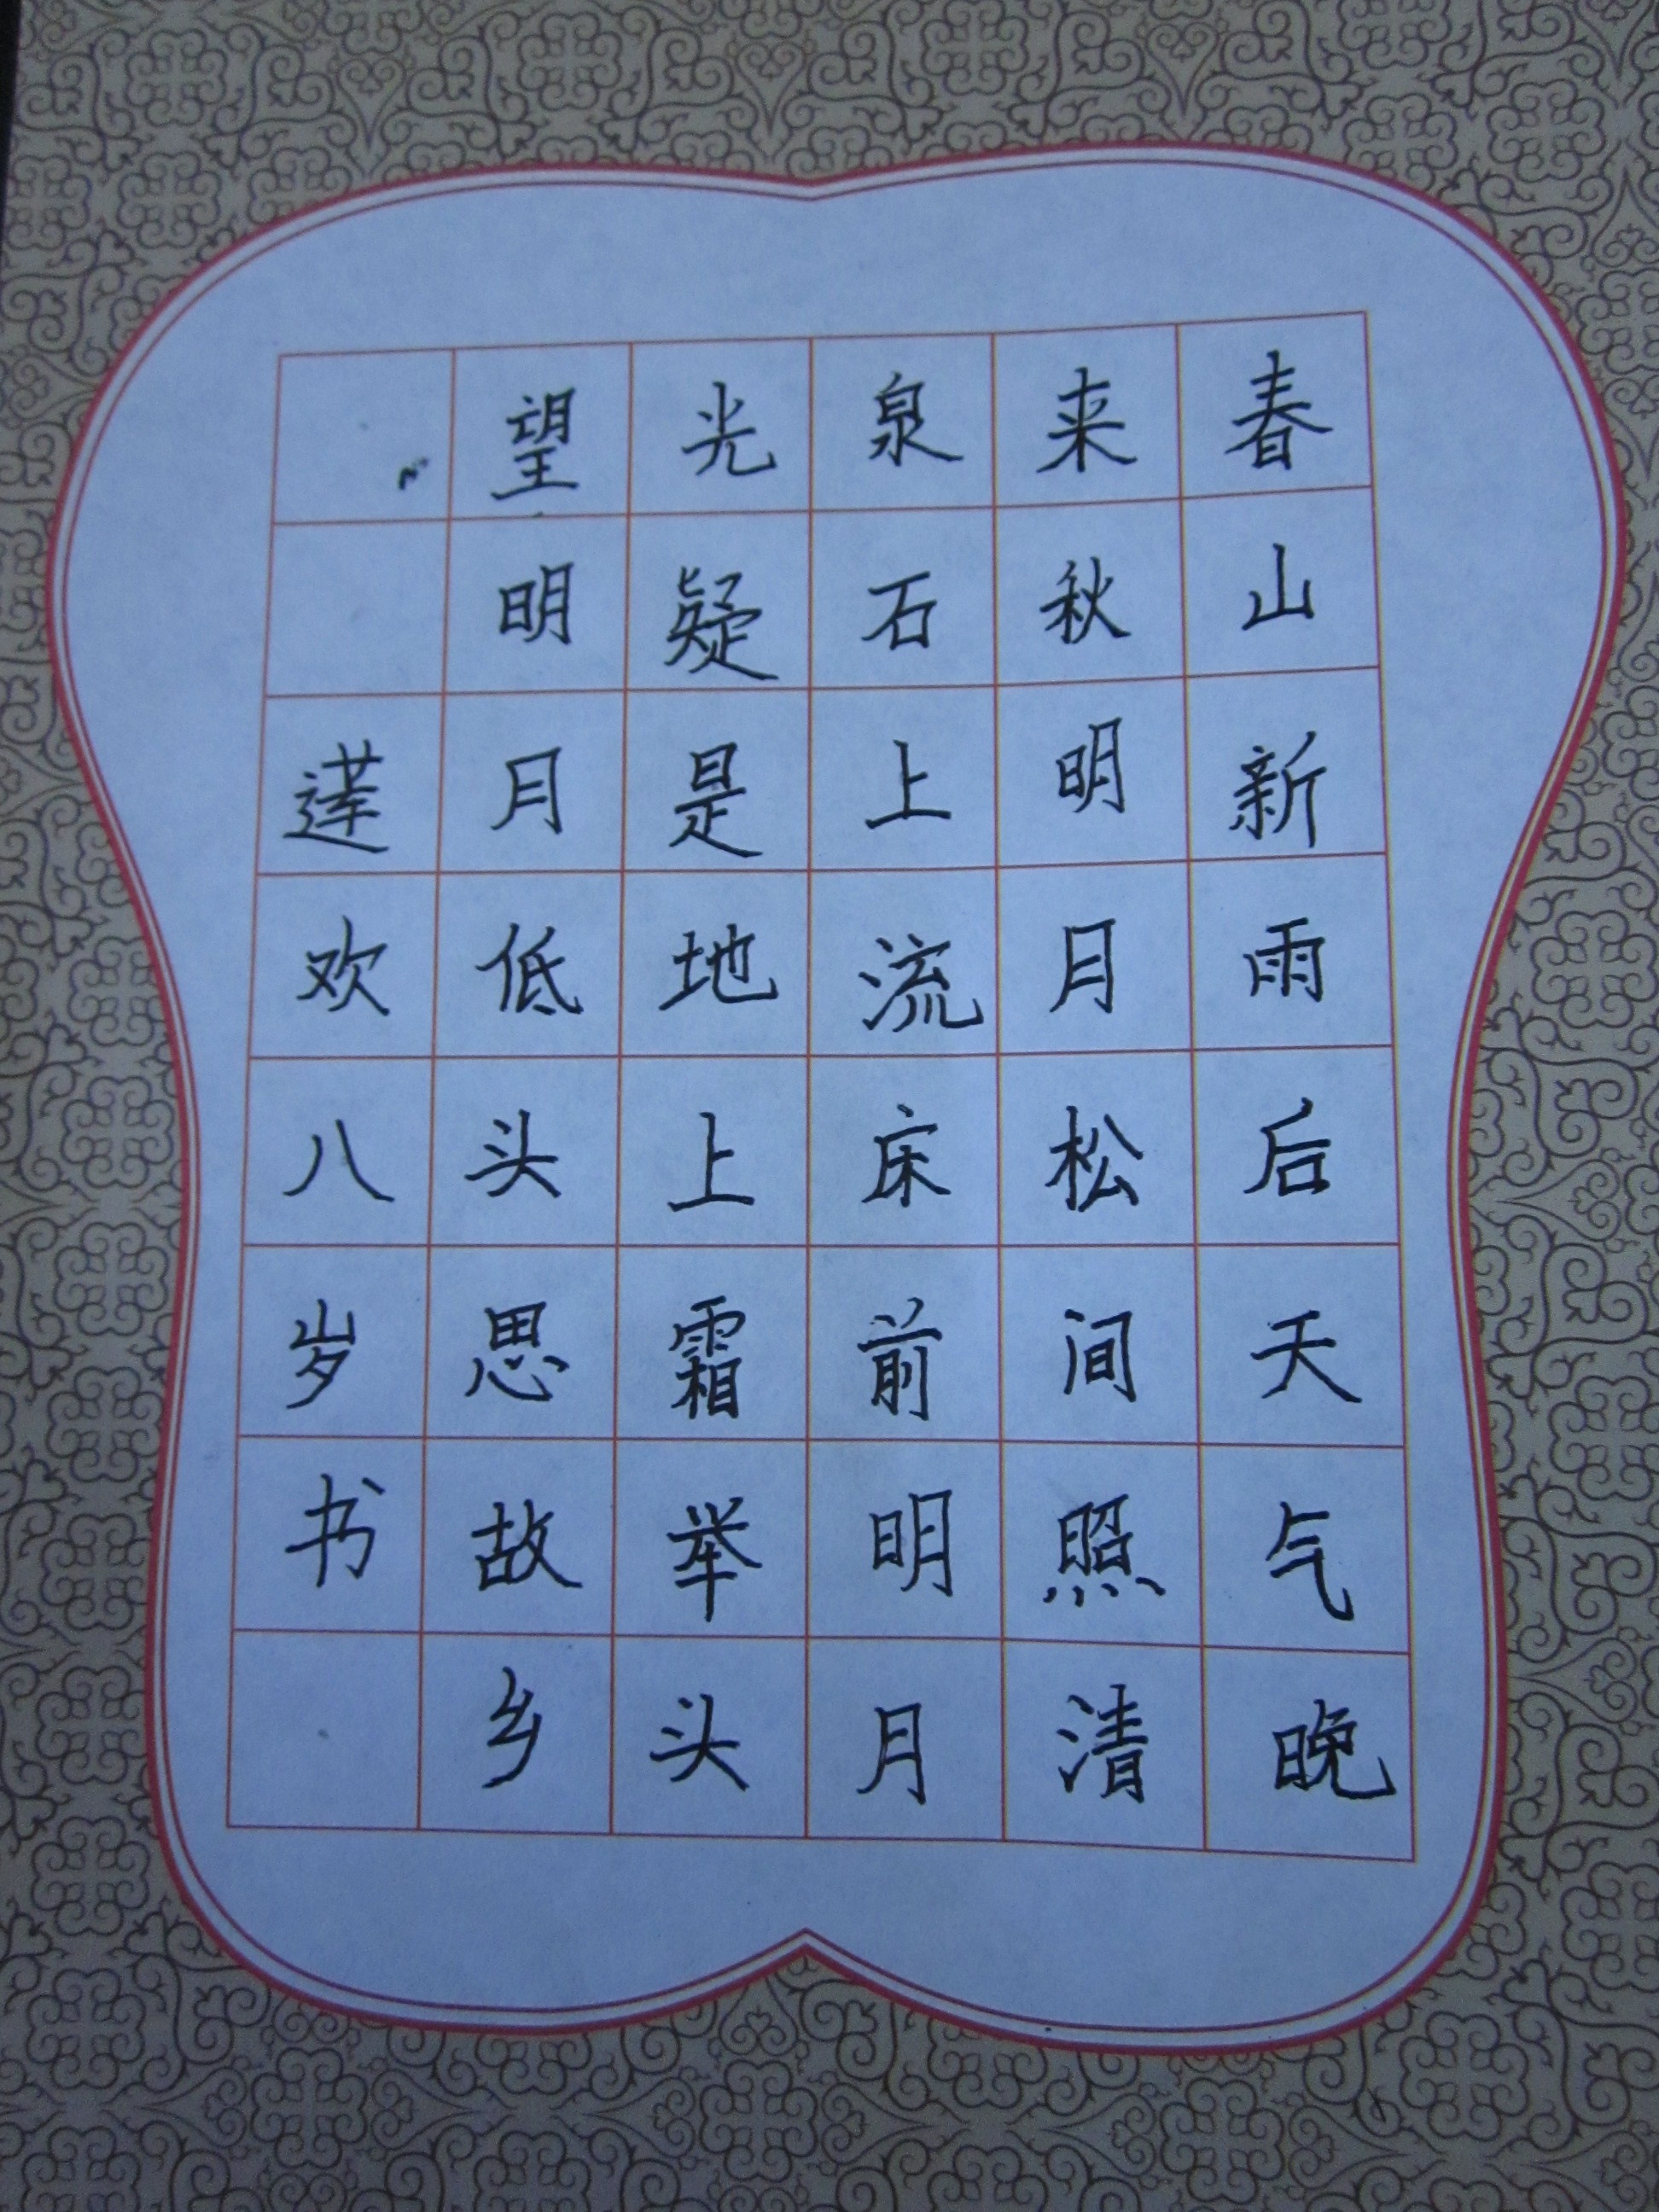 春山新雨后天气晚
来秋明月松间照清
泉石上流床前明月
光疑是地上霜举头
望明月低头思故乡
欢八岁书